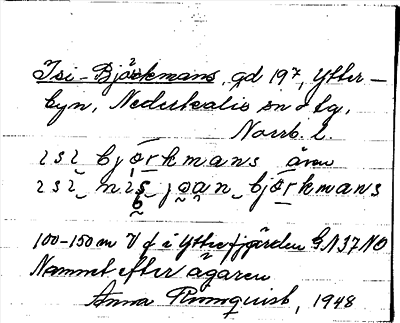 Isi-Björkmans, gd 19⁷, Ytter-
byn, Nederkalix sn o tg,
Norrb. l.
ɩsɩ bjö̱rkmans även
ɩsɩ nɩs joan bjö̱rkmans
100-150 m V f i Ytterfjärden G.N37NO
Namnet efter ägaren
Anna Rönnquist, 1948